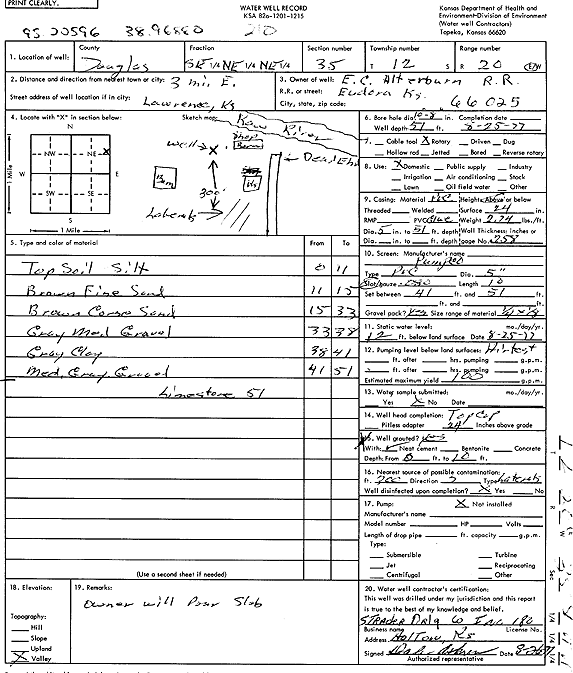 PRINT CLEARLY.
WATER WELL RECORD
KSA 82a-1201-1215
Kansas Department of Health and
Environment-Division of Environment
(Water well Contractors)
Topeka, Kansas 66620
95.20596 38.96880 210
1. Location of well: County Douglas Fraction SE 1/4 NE 1/4 NE 1/4 Section number 35 Township number T 12 S Range number R 20 E/W
2. Distance and direction from nearest town or city: 3 mi. E.
Street address of well location if in city: Lawrence, Ks
3. Owner of well: E.C. Alterburn R.R.
R.R., or street: Eudora Ks.
City, state, zip code: 66025
4. Locate with "X" in section below:
N
NW NE
W E
SW SE
S
1 Mile
1 Mile
Sketch map:
Kaw River
well X
300'
Laterals
6. Bore hole dia. in. Completion date
Well depth 51 ft. 8-25-77
7. Cable tool X Rotary Driven Dug
Hollow rod Jetted Bored Reverse rotary
8. Use: X Domestic Public supply Industry
Irrigation Air conditioning Stock
Lawn Oil field water Other
9. Casing: Material PVC Height: Above or below
Threaded Welded Surface 24 in.
RMP PVC Glue Weight 2.74 lbs./ft.
Dia. 5 in. to 51 ft. depth Wall Thickness: inches or
Dia. in. to ft. depth gage No. .258
10. Screen: Manufacturer's name
Type PVC Dia. 5"
Slot/gauze Length 10
Set between 41 ft. and 51 ft.
ft. and ft.
Gravel pack? yes Size range of material
11. Static water level: mo./day/yr.
12 ft. below land surface Date 8-25-77
12. Pumping level below land surfaces:
ft. after hrs. pumping g.p.m.
ft. after hrs. pumping g.p.m.
Estimated maximum yield 100 g.p.m.
13. Water sample submitted: mo./day/yr.
Yes X No Date
14. Well head completion: Top Cap
Pitless adapter 24 Inches above grade
15. Well grouted? yes
With: Neat cement Bentonite Concrete
Depth: From 0 ft. to 10 ft.
16. Nearest source of possible contamination:
ft. 300 Direction Type Laterals
Well disinfected upon completion? X Yes No
17. Pump: X Not installed
Manufacturer's name
Model number HP Volts
Length of drop pipe ft. capacity g.p.m.
Type:
Submersible Turbine
Jet Reciprocating
Centrifugal Other
5. Type and color of material From To
Top Soil Silt 0 11
Brown Fine Sand 11 15
Brown Corse Sand 15 33
Gray Med Gravel 33 38
Gray Clay 38 41
Med. Gray Gravel 41 51
Limestone 51
(Use a second sheet if needed)
18. Elevation:
Topography:
Hill
Slope
Upland
X Valley
19. Remarks:
Owner will Pour Slab
20. Water well contractor's certification:
This well was drilled under my jurisdiction and this report
is true to the best of my knowledge and belief.
Strader Drlg Co Inc 180
Business name License No.
Address Holton, Ks
Signed Date
Authorized representative